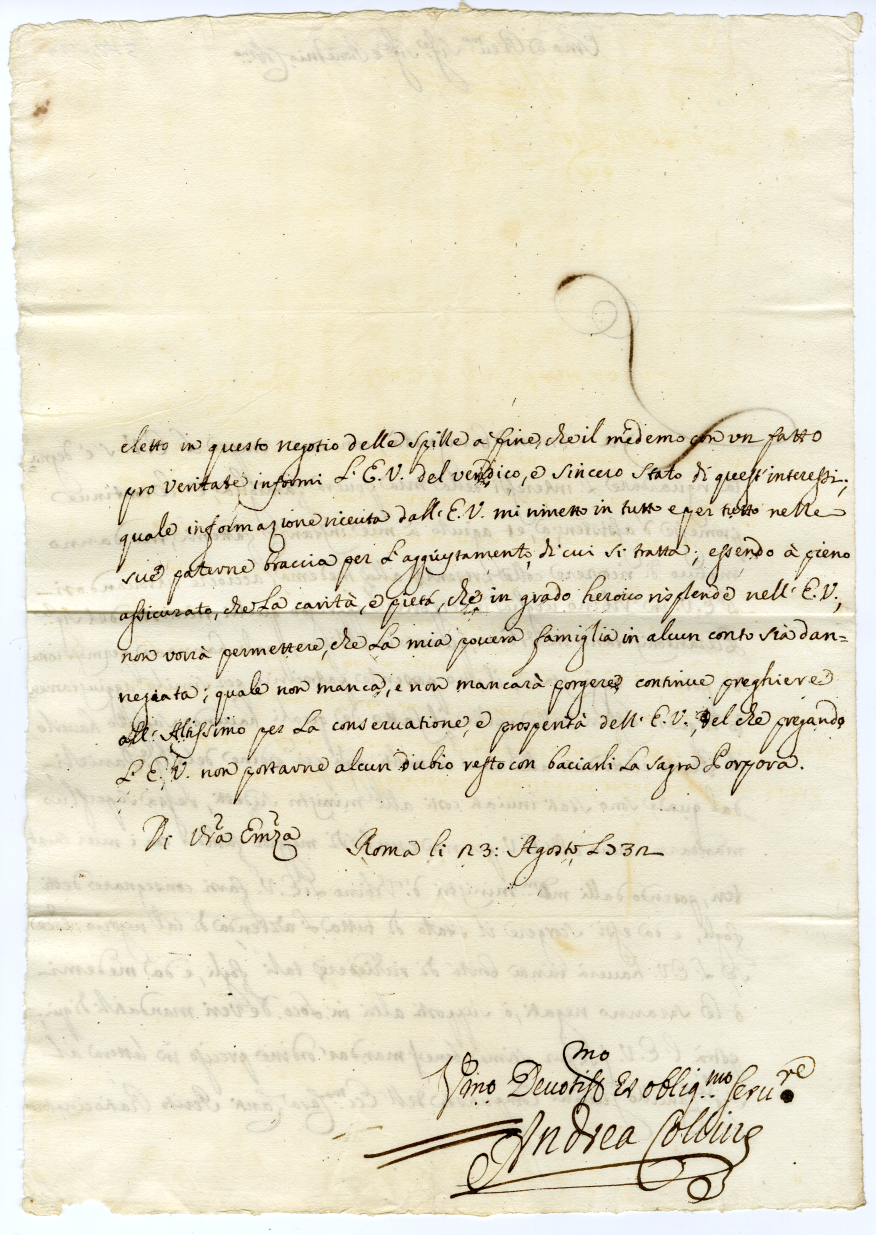 eletto in questo negotio delle spille à fine, che il medemo con un fatto
pro veritate informi L'E.V. del veridico, e sincero stato di quest'interessi;
quale informazione riceuta dall'E.V. mi rimetto in tutto e per tutto nelle
sue paterne braccia per l'aggiustamento, di cui si tratta; essendo à pieno
assicurato, che la carità, e pietà, che in grado heroico risplende nell'E.V.,
non vorrà permettere, che la mia povera famiglia in alcun conto sia dan=
negiata; quale non manca, e non mancarà porgere continue preghiere
all'Altissimo per la conservatione, e prosperità dell'E.V., del che pregando
L'E.V. non portarne alcun dubio resto con baciarli la sagra Porpora.
Di Vrā Emzā Roma li 23: Agosto
Devotiss.mo et obblig.mo Serv.re
Andrea